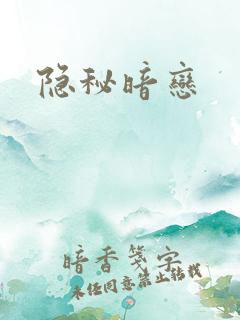 隐秘暗戀
暗香箋字
未经同意禁止转载